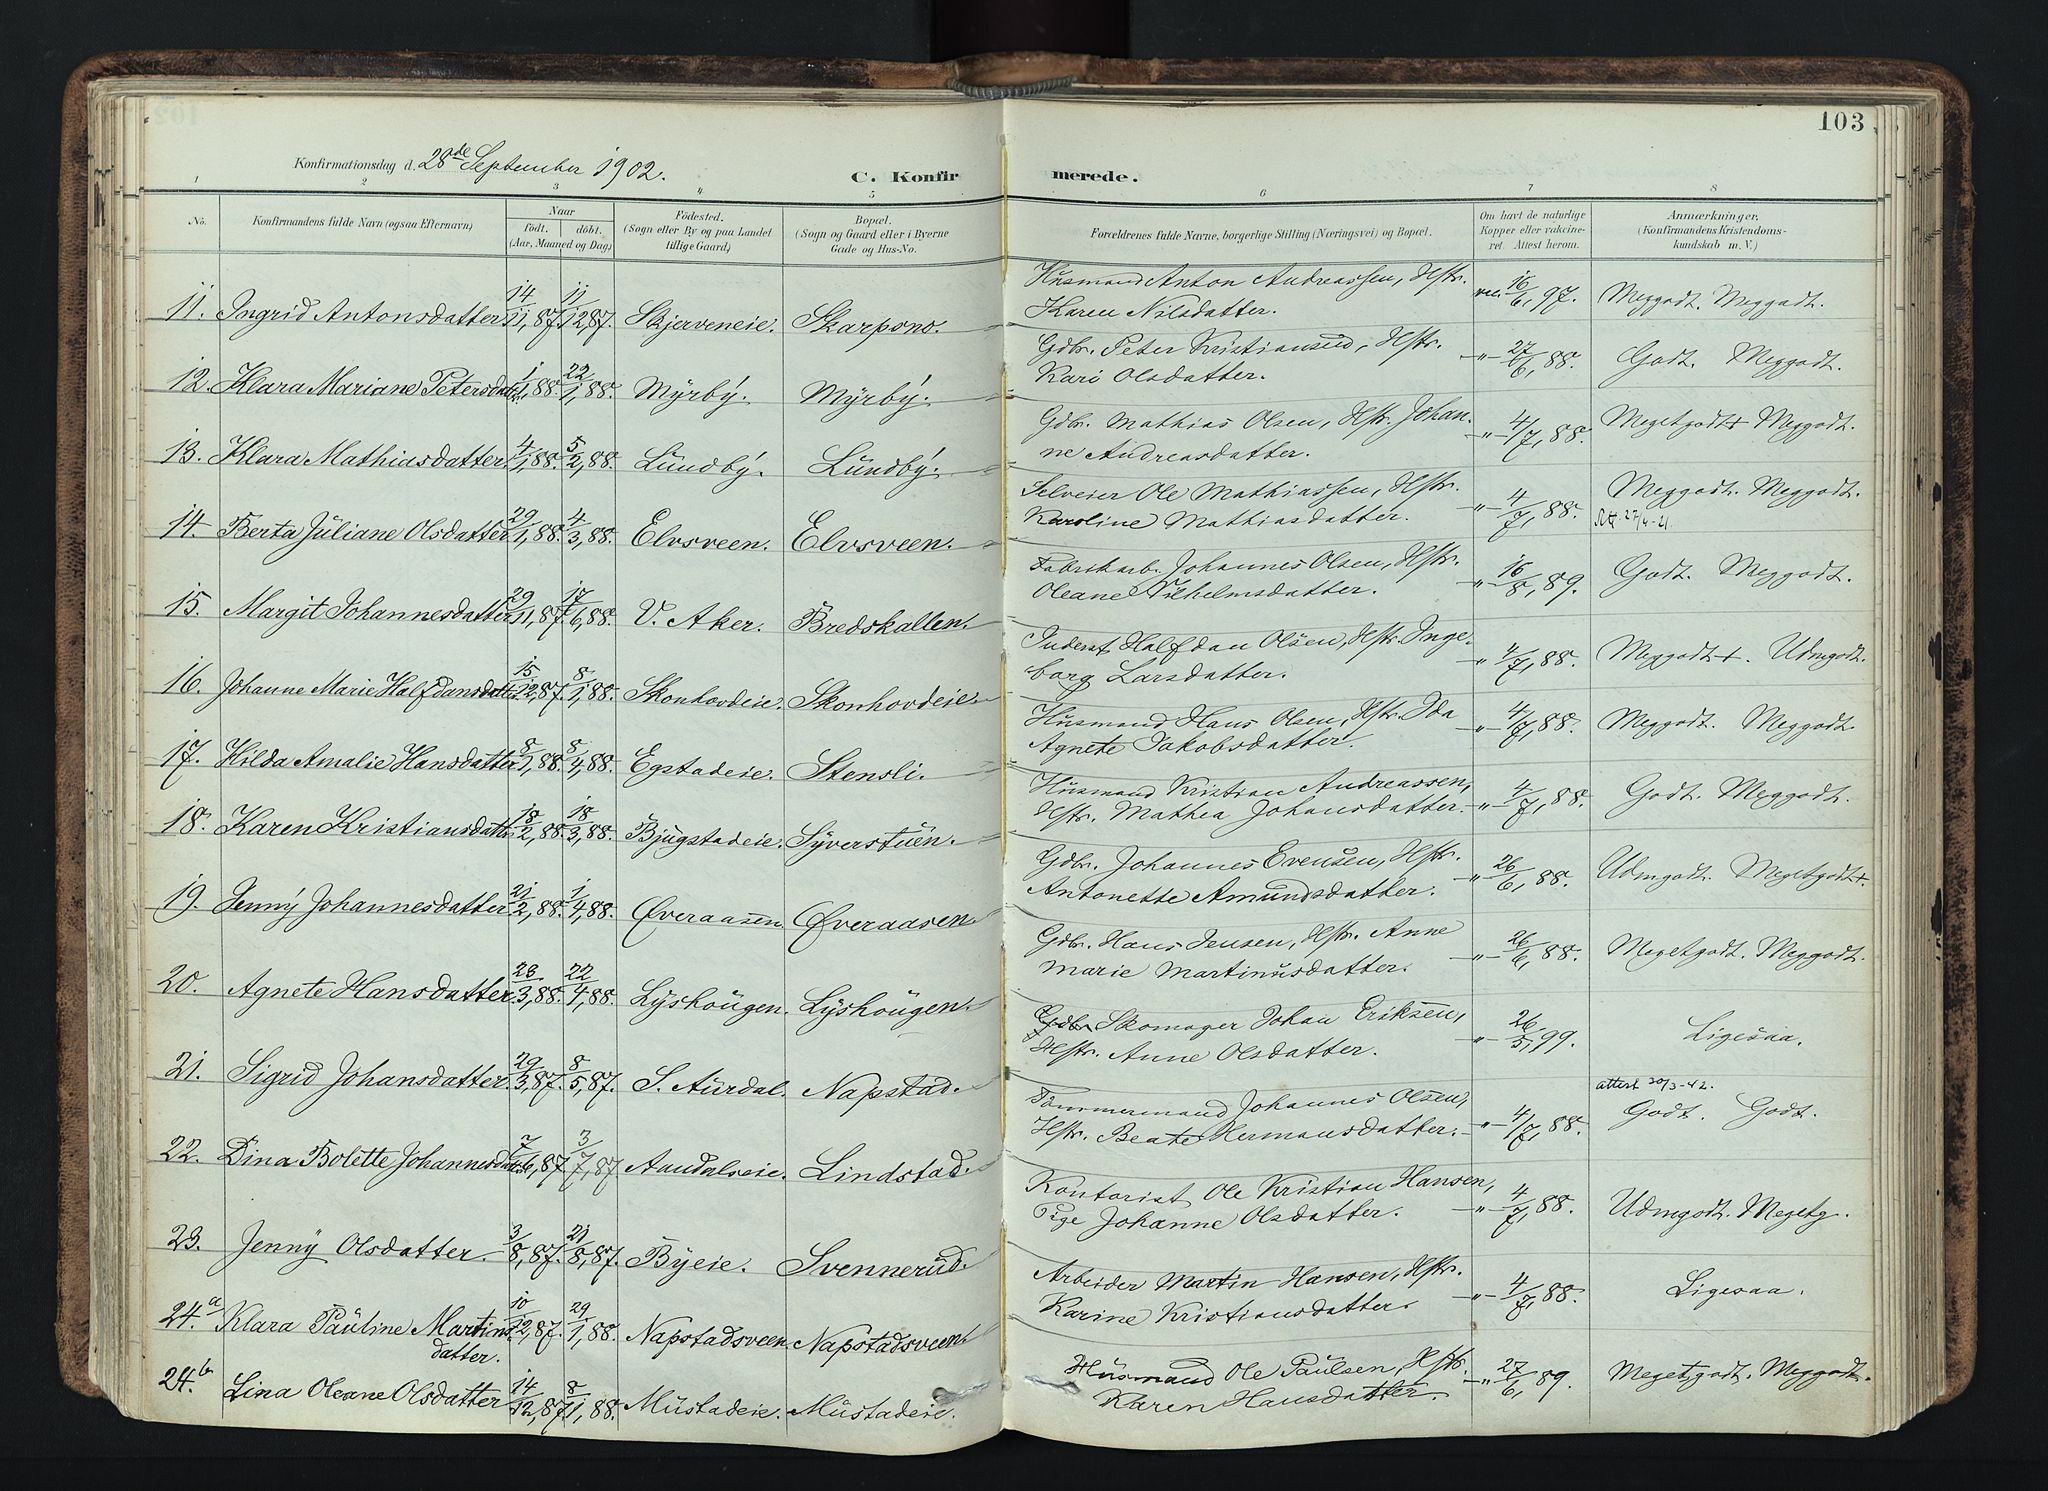 103
Konfirmationsdag d. 28de September 1902.
C. Konfirmerede.
1 2 3 4 5 6 7 8
No.
Konfirmandens fulde Navn (ogsaa Efternavn)
Naar
født. døbt.
(Aar, Maaned og Dag)
Fødested.
(Sogn eller By og paa Landet
tillige Gaard)
Bopæl.
(Sogn og Gaard eller i Byerne
Gade og Hus-No.
Forældrenes fulde Navne, borgerlige Stilling (Næringsvei) og Bopæl.
Om havt de naturlige
Kopper eller vakcine-
ret. Attest herom.
Anmærkninger.
(Konfirmandens Kristendoms-
kundskab m. V.)
11. Ingrid Antonsdatter 14/11,87. 11/12 87. Skjerveneie. Skarpsno. Husmand Anton Andreassen, Hstr.
Karen Nilsdatter. vac. 16/6, 97. Meggodt. Meggodt.
12. Klara Mariane Petersdatr. 1/1,88. 22/1,88. Myrby. Myrby. Gdbr. Peter Kristiansen, Hstr.
Kari Olsdatter. -"- 27/6, 88. Godt. Meggodt.
13. Klara Mathiasdatter 4/1,88. 5/2,88. Lundby. Lundby. Gdbr. Mathias Olsen, Hstr. Johan-
ne Andreasdatter. -"- 4/7, 88. Megetgodt+ Meggodt.
14. Berta Juliane Olsdatter 29/1,88. 4/3,88. Elvsveen. Elvsveen. Selveier Ole Mathiassen, Hstr.
Karoline Mathiasdatter. -"- 4/7, 88. Meggodt. Meggodt.
Att. 27/4-21.
15. Margit Johannesdatter 29/11,87. 17/6,88. V. Aker. Bredskallen. Fabrikarb. Johannes Olsen, Hstr.
Oleane Vilhelmsdatter. -"- 16/8, 89. Godt. Meggodt.
16. Johanne Marie Halfdansdatter 15/12,87. 8/1,88. Skonhovdeie. Skonhovdeie. Inderst Halfdan Olsen, Hstr. Inge-
borg Larsdatter. -"- 4/7, 88. Meggodt+. Udmgodt.
17. Hilda Amalie Hansdatter 8/1,88. 8/4,88. Egstadeie. Stensli. Husmand Hans Olsen, Hstr. Ida
Agnete Jakobsdatter. -"- 4/7, 88. Meggodt. Meggodt.
18. Karen Kristiansdattr. 18/2,88. 18/3,88. Bjugstadeie. Syverstuen. Husmand Kristian Andreassen,
Hstr. Mathea Johansdatter. -"- 4/7, 88. Godt. Meggodt.
19. Jenny Johannesdatter 21/2,88. 1/4,88. Øveraasen. Øveraasen. Gdbr. Johannes Evensen, Hstr.
Antonette Amundsdatter. -"- 26/6, 88. Udmgodt. Megetgodt+.
20. Agnete Hansdatter 23/3,88. 22/4,88. Lyshougen. Lyshougen. Gdbr. Hans Jensen, Hstr. Anne
Marie Martinusdatter. -"- 26/6, 88. Megetgodt. Meggodt.
21. Sigrid Johansdatter 29/3,87. 8/5,87. S. Aurdal. Napstad. Gdbr. Skomager Johan Eriksen,
Hstr. Anne Olsdatter. -"- 26/5, 99. Ligesaa.
22. Dina Bolette Johannesdatr. 7/6,87. 3/7,87. Aandalseie. Lindstad. Tømmermand Johannes Olsen,
Hstr. Beate Hermansdatter. -"- 4/7, 88. attest 20/3-42.
Godt. Godt.
23. Jenny Olsdatter. 3/8,87. 21/8,87. Byeie. Svennerud. Kontorist Ole Kristian Hansen,
Pige Johanne Olsdatter. -"- 4/7, 88. Udmgodt. Megetg.
24.a Klara Pauline Martins-
datter. 10/12,87. 29/1,88. Napstadsveen. Napstadsveen. Arbeider Martin Hansen, Hstr.
Karine Kristiansdatter. -"- 4/7, 88. Ligesaa.
24.b Lina Oleane Olsdatter 14/12,87. 8/1,88. Mustadeie. Mustadeie. Husmand Ole Paulsen, Hstr.
Karen Hansdatter. -"- 27/6, 89. Megetgodt. Meggodt.